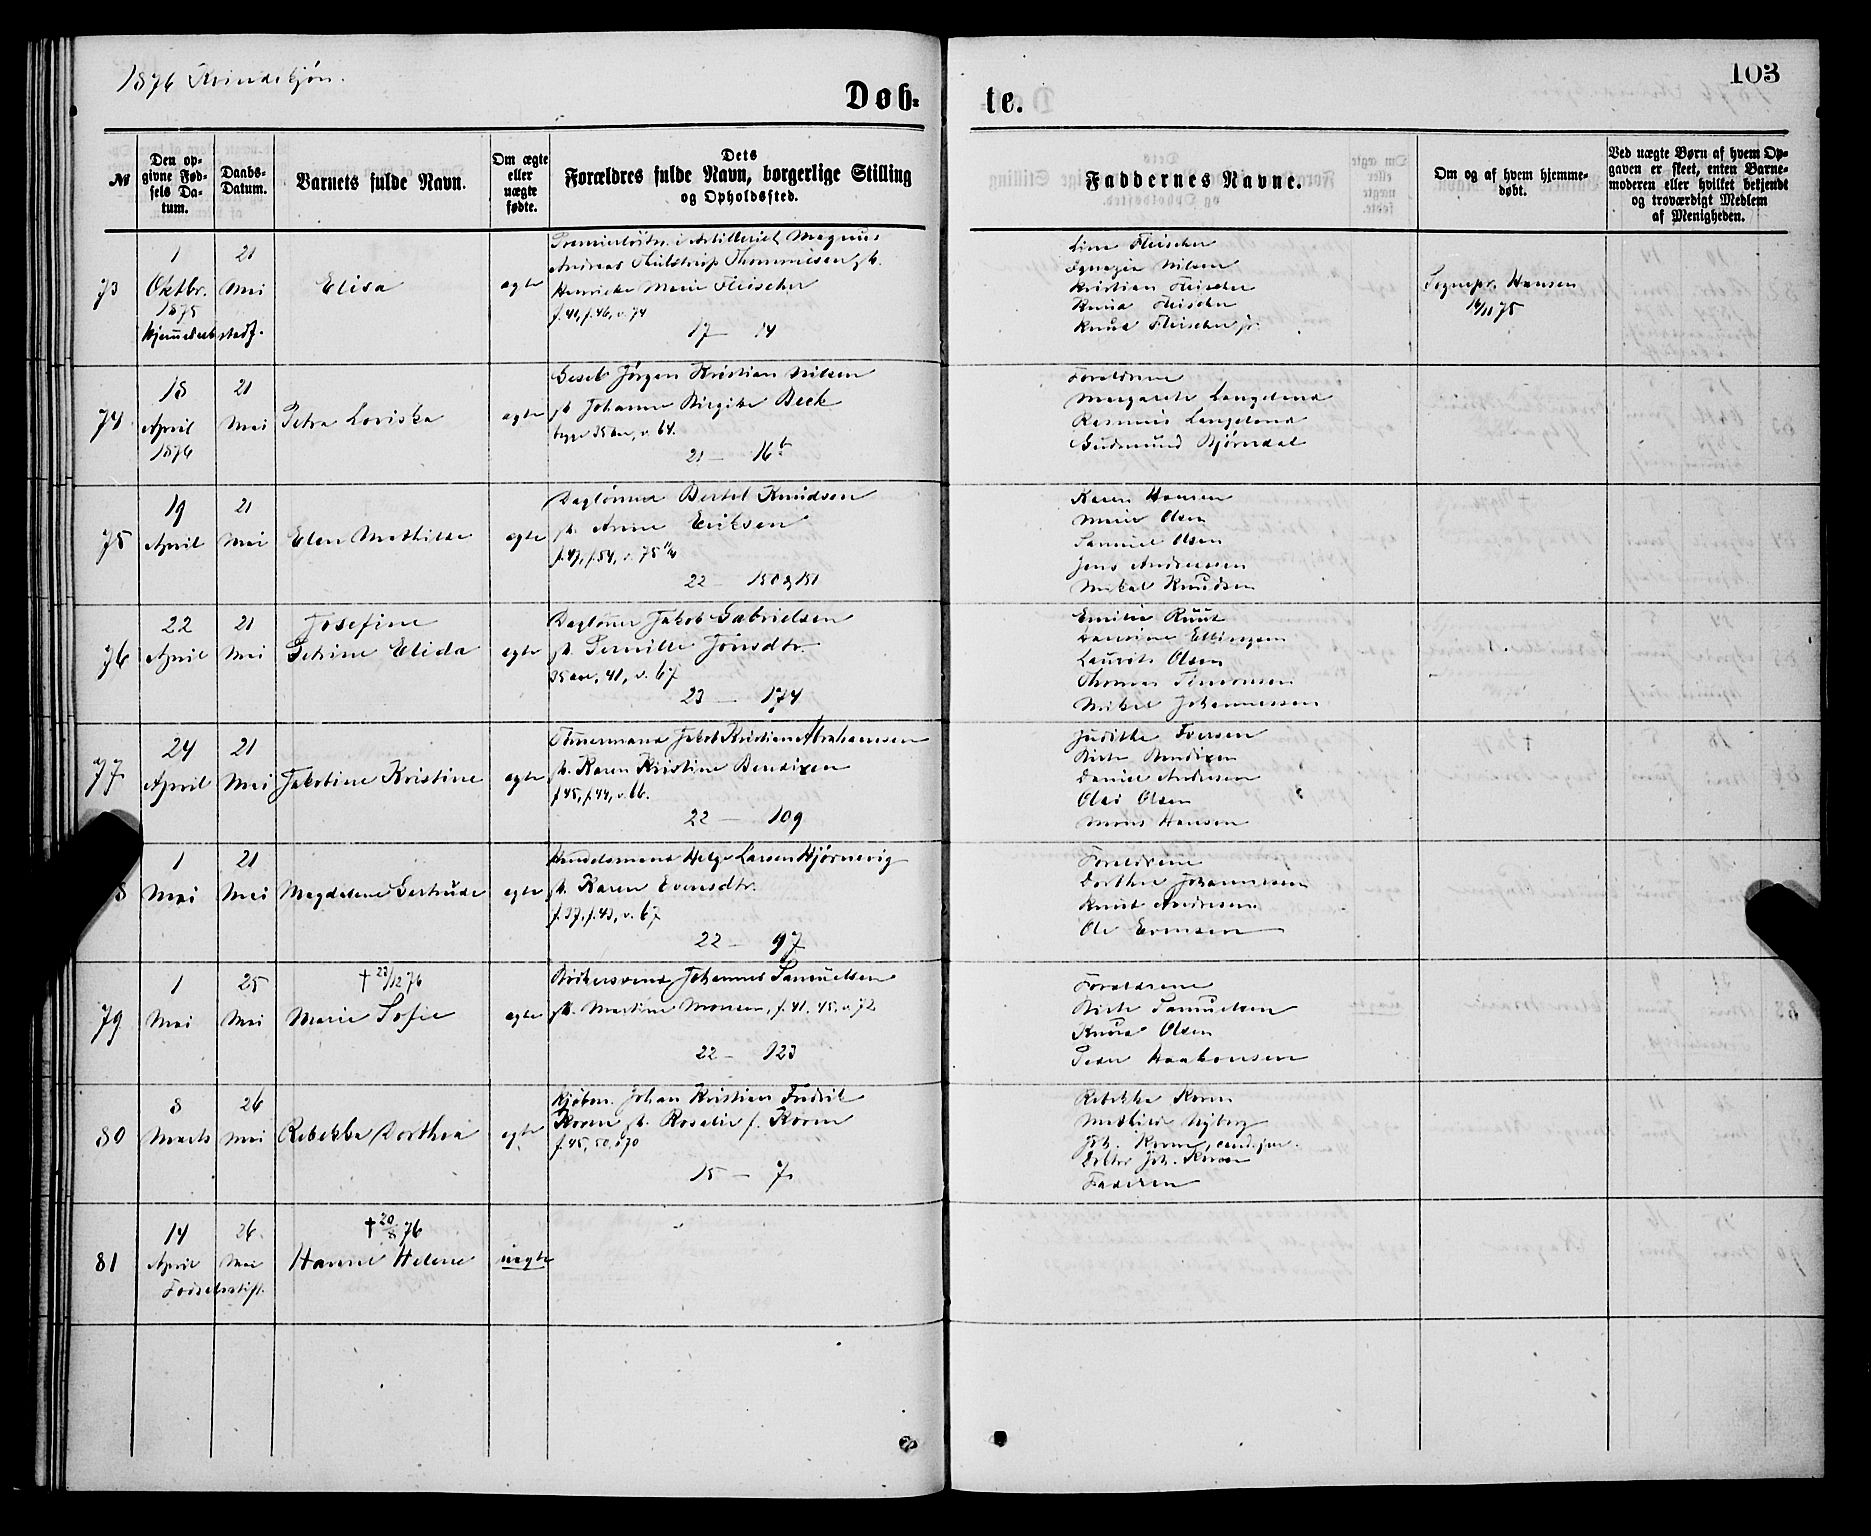 1876 Kvindekjøn.
103
Døb-
te.
№
Den op-
givne Fød-
sels Da-
tum.
Daabs-
Datum.
Barnets fulde Navn.
Om ægte
eller
uægte
fødte.
Dets
Forældres fulde Navn, borgerlige Stilling
og Opholdssted.
Faddernes Navne.
Om og af hvem hjemme-
døbt.
Ved uægte Børn af hvem Op-
gaven er skeet, enten Barne-
moderen eller hvilket bekjendt
og troværdigt Medlem
af Menigheden.
73
1
Oktbr.
1875
21
Mai
Elisa
ægte
Premierløitn. i Artilleriet Magnus
Andreas Thulstrup Thommesen, h.
Henrikke Marie Fleischer
f. 41, f. 46, v. 74
17 — 14
Line Fleischer
Nilsen
Kristian Fleischer
Knud Fleischer
Knud Fleischer jr.
Sognepr. Hansen
16/11 75
74
18
April
1876
21
Mai
Petra Loviska
ægte
Jørgen Kristian Nilsen
h. Johanne Birgitte Beck
v. 64.
21 — 16 b
Forældrene
Margarete Langeland
Rasmus Langeland
Gudmund Bjørndal
75
19
April
21
Mai
Elen Mathilde
ægte
Dagløner Bertel Knudsen
h. Anne Eriksen
f. 47, f. 54, v. 75
22 — 150 g 151
Karen Hansen
Marie Olsen
Samuel Olsen
Jens Andreassen
Mikal Knudsen
76
22
April
21
Mai
Josefine
Petrine Elida
ægte
Dagløner Jakob Gabrielsen
h. Pernille Jonsdtr.
35 aar, 41, v. 67
23 — 174
Emilie Knut
Ellingsen
Laurits Olsen
Thomas Simonsen
Mikal Johannessen
77
24
April
21
Mai
Jakobine Kristine
ægte
Tømermand Jakob Kristian Abrahamsen
h. Karen Kristine Bendixen
f. 45, f. 44, v. 66.
22 — 109
Judithe Iversen
Birte Bendixen
Daniel Andersen
Olai Olsen
Mons Hansen
8
1
Mai
21
Mai
Magdalene Gertrude
ægte
Handelsmand Helge Larsen Hjørnevig
h. Karen Evensdtr.
f. 37, f. 43, v. 67
22 — 97
Forældrene
Dorthe Johannessen
Knut Andersen
Ole Evensen
79
1
Mai
25
Mai
† 23/12 76
Marie Sofie
ægte
Bødkersvend Johannes Samuelsen
h. Martine Monsen, f. 41, 45, v. 72
22 — 123
Forældrene
Birte Samuelsen
Knud Olsen
Peder Haakonsen
80
8
Marts
26
Mai
Rebekka Dorthea
ægte
Kjøbm. Johan Kristian Fredrik
Koren h. Rosalie f. Koren
f. 45, 50, v 70
15 — 7
Rebekka Koren
Mathilde Nyberg
Joh. Koren, cand. jur.
Doktor Joh. Koren
Faderen
81
14
April
Fødselsstift.
26
Mai
† 20/8 76
Hanne Helene
uægte